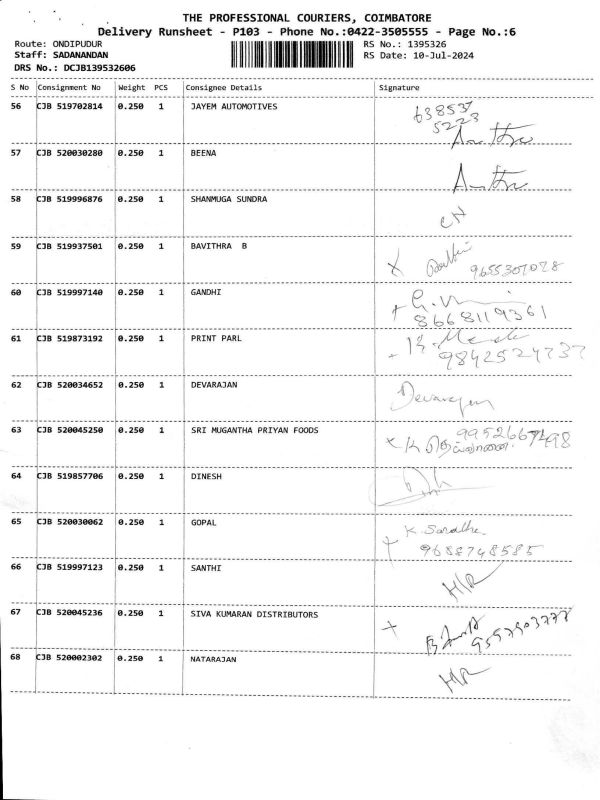 THE PROFESSIONAL COURIERS, COIMBATORE
Delivery Runsheet - P103 - Phone No.:0422-3505555 - Page No.:6
Route: ONDIPUDUR RS No.: 1395326
Staff: SADANANDAN RS Date: 10-Jul-2024
DRS No.: DCJB139532606
S No Consignment No Weight PCS Consignee Details Signature
56 CJB 519702814 0.250 1 JAYEM AUTOMOTIVES 638537
5223
57 CJB 520030280 0.250 1 BEENA
58 CJB 519996876 0.250 1 SHANMUGA SUNDRA
59 CJB 519937501 0.250 1 BAVITHRA B
9655307028
60 CJB 519997140 0.250 1 GANDHI
8668119361
61 CJB 519873192 0.250 1 PRINT PARL
9842527737
62 CJB 520034652 0.250 1 DEVARAJAN Devarajan
63 CJB 520045250 0.250 1 SRI MUGANTHA PRIYAN FOODS
64 CJB 519857706 0.250 1 DINESH
65 CJB 520030062 0.250 1 GOPAL K. Saradha
9688748585
66 CJB 519997123 0.250 1 SANTHI H/R
67 CJB 520045236 0.250 1 SIVA KUMARAN DISTRIBUTORS
68 CJB 520002302 0.250 1 NATARAJAN H/R